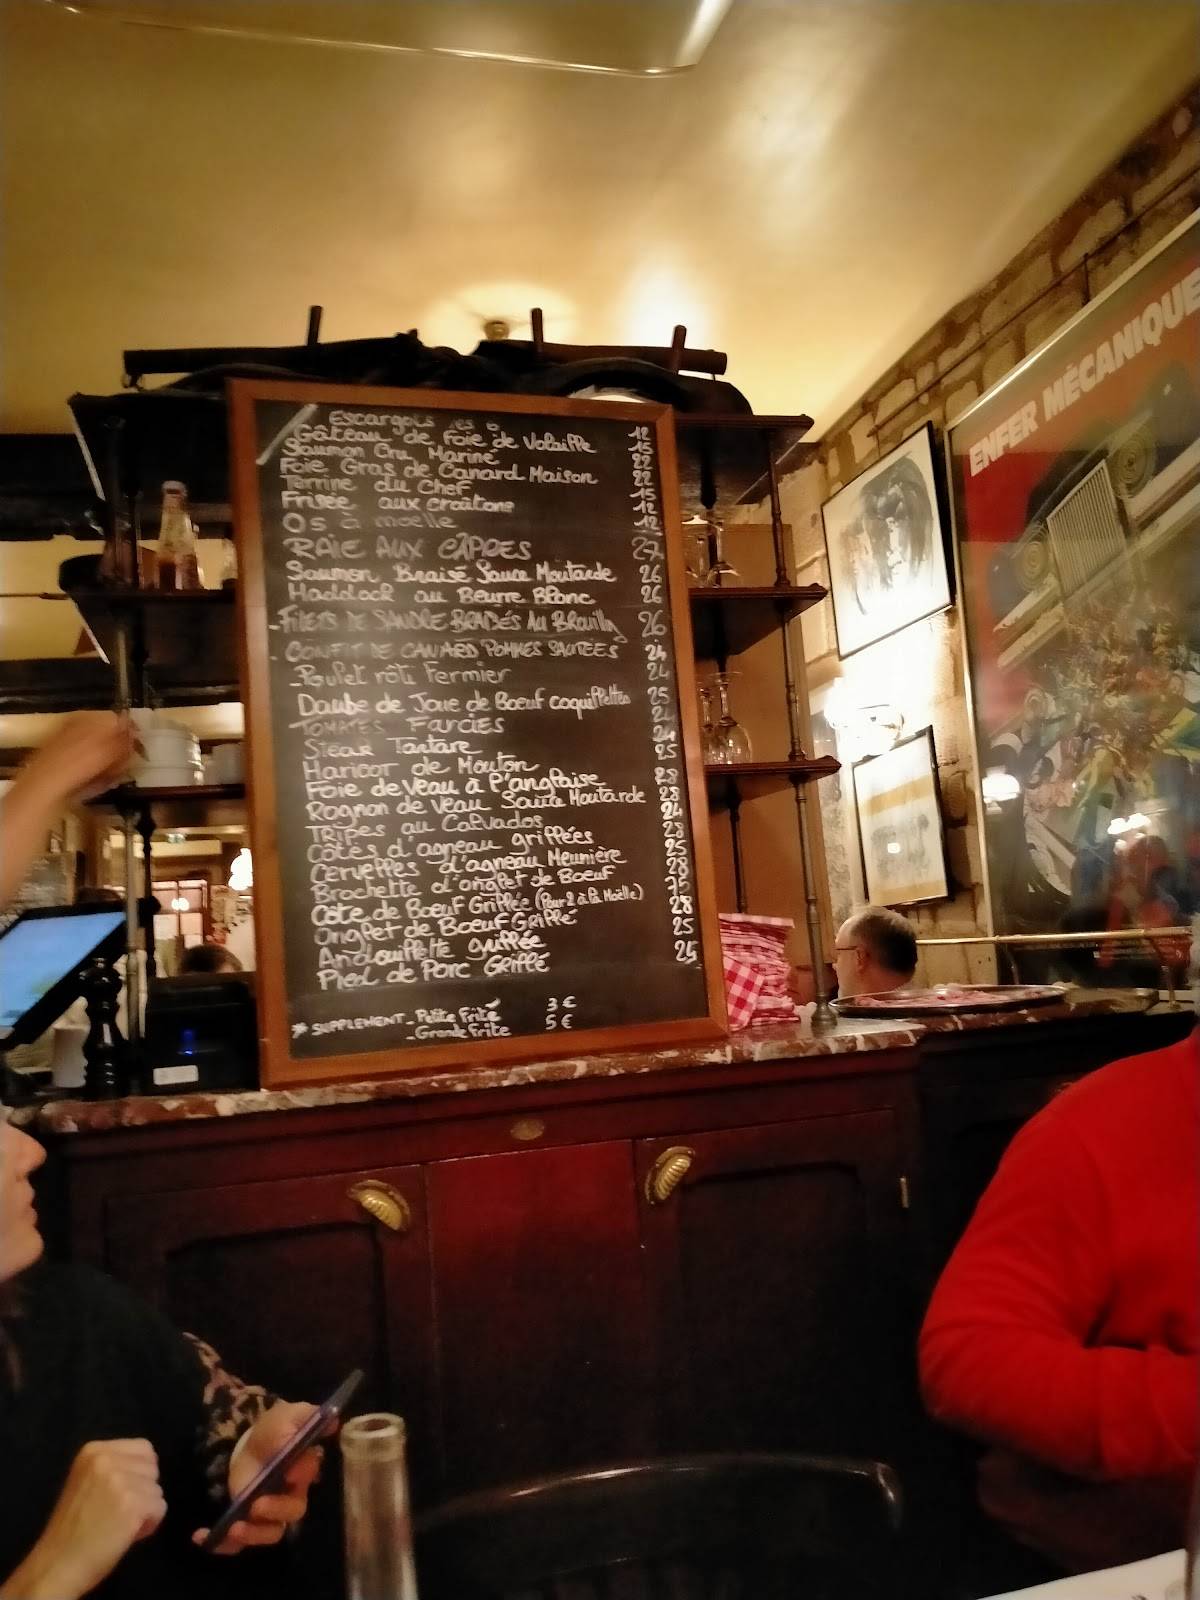 Escargots les 6 12
Gâteau de Foie de Volaille 15
Saumon Cru Mariné 22
Foie Gras de Canard Maison 22
Terrine du Chef 15
Frisée aux croûtons 12
Os à moelle 12
RAIE AUX CÂPRES 27
Saumon Braisé Sauce Moutarde 26
Haddock au Beurre Blanc 26
- FILETS DE SANDRE BRAISÉS AU BROUILLY 26
- CONFIT DE CANARD POMMES SAUTÉES 24
- Poulet rôti Fermier 24
Daube de Joue de Boeuf coquillettes 25
TOMATES FARCIES 24
Steak Tartare 24
Haricot de Mouton 25
Foie de Veau à l'anglaise 28
Rognon de Veau Sauce Moutarde 28
TRIPES au Calvados 24
Côtes d'agneau grillées 28
Cervelles d'agneau Meunière 25
Brochette d'onglet de Boeuf 28
Côte de Boeuf Grillée (Pour 2 à la Moëlle) 75
Onglet de Boeuf Grillé 28
Andouillette grillée 25
Pied de Porc Grillé 25
* SUPPLEMENT - Petite Frite 3 €
- Grande Frite 5 €
ENFER MÉCANIQUE